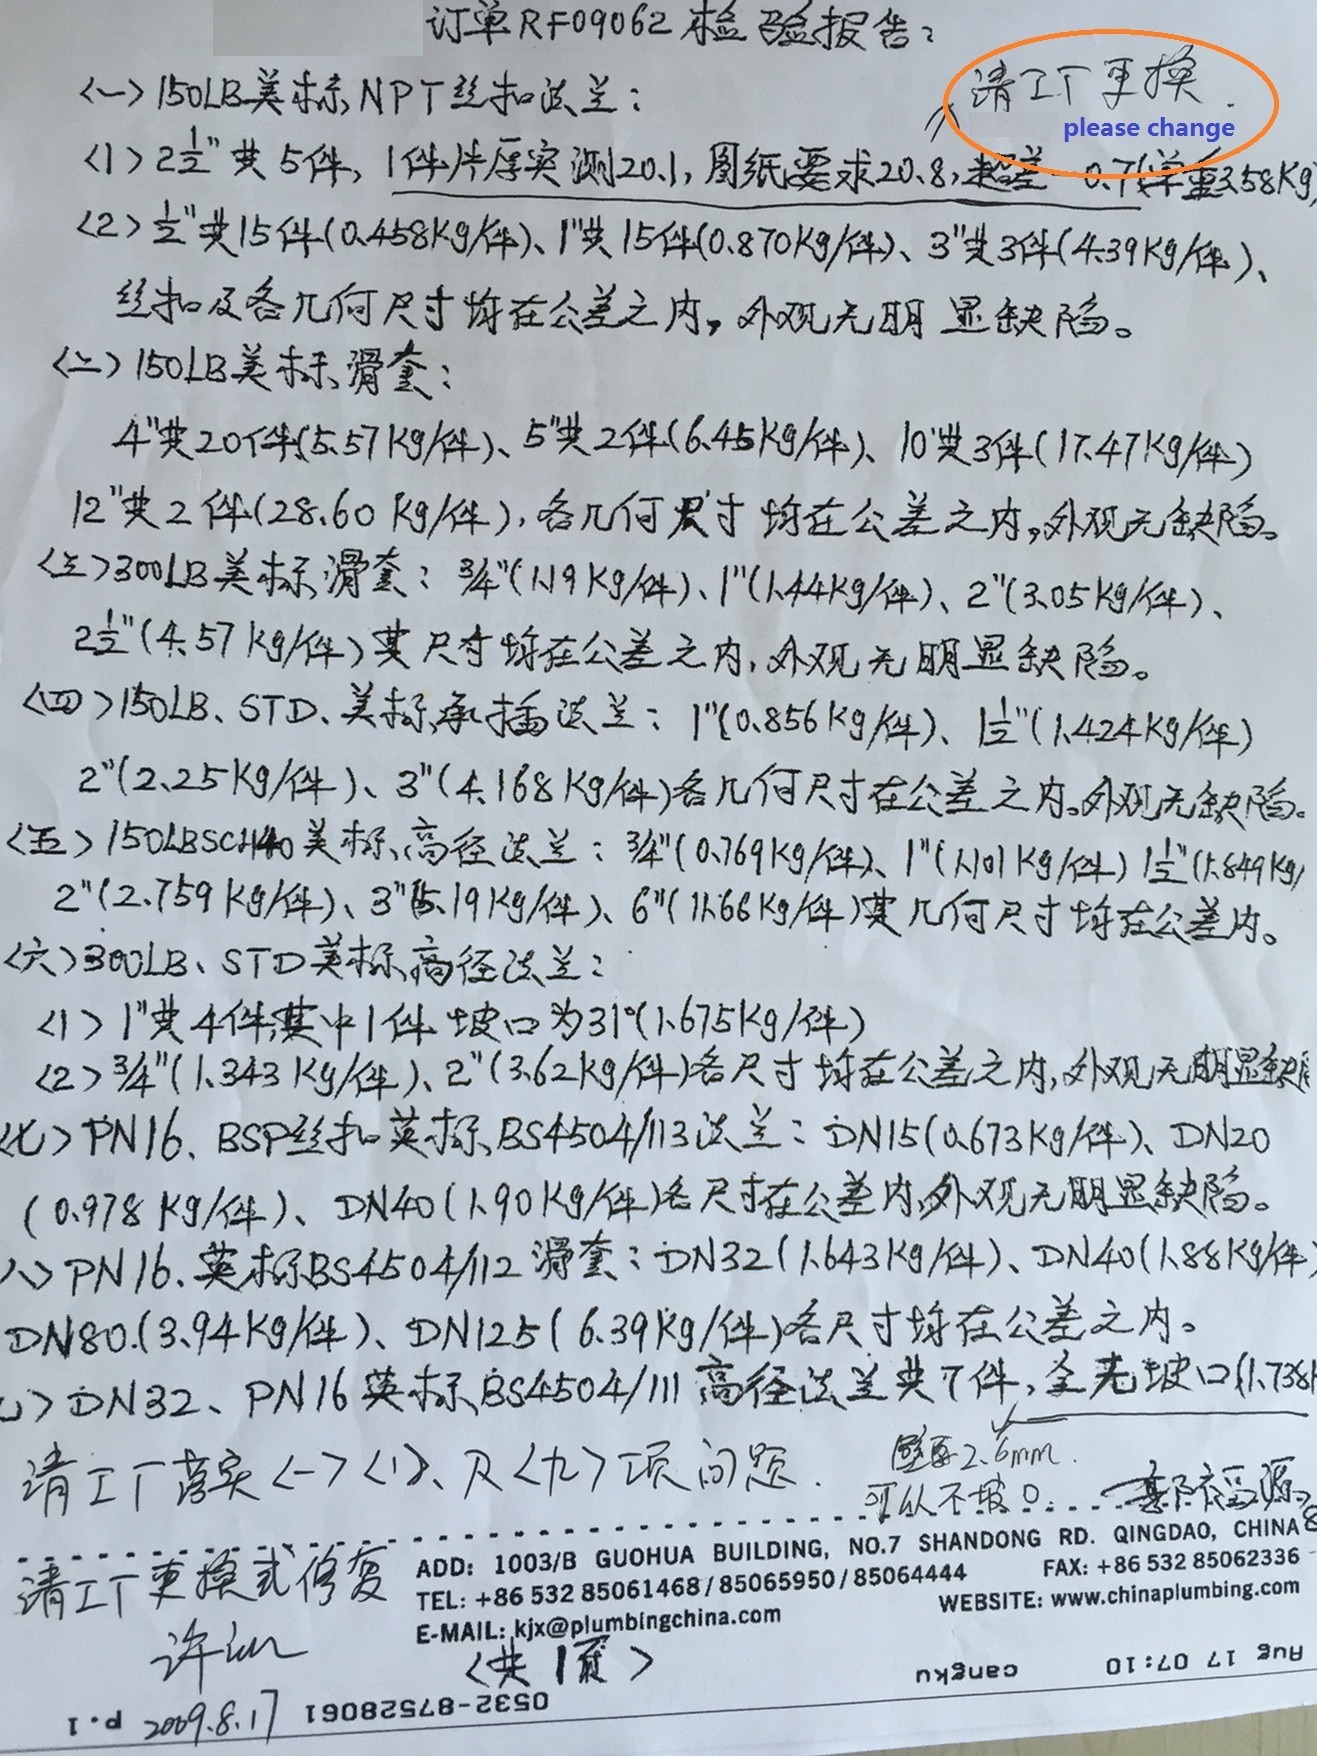 订单RF09062检验报告：
请工厂更换.
please change
<一>150LB美标NPT丝扣法兰：
<1>2½"共5件，1件片厚实测20.1，图纸要求20.8，超差-0.7(单重3.58Kg)
<2>½"共15件(0.458Kg/件)、1"共15件(0.870Kg/件)、3"共3件(4.39Kg/件)、
丝扣及各几何尺寸均在公差之内，外观无明显缺陷。
<二>150LB美标滑套：
4"共20件(5.57Kg/件)、5"共2件(6.45Kg/件)、10"共3件(17.47Kg/件)
12"共2件(28.60Kg/件)，各几何尺寸均在公差之内，外观无缺陷。
<三>300LB美标滑套：3/4"(1.19Kg/件)、1"(1.44Kg/件)、2"(3.05Kg/件)、
2½"(4.57Kg/件)其尺寸均在公差之内，外观无明显缺陷。
<四>150LB、STD、美标承插法兰：1"(0.856Kg/件)、1½"(1.424Kg/件)
2"(2.25Kg/件)、3"(4.168Kg/件)各几何尺寸在公差之内。外观无缺陷。
<五>150LBSCH40美标高径法兰：3/4"(0.769Kg/件)、1"(1.101Kg/件)1½"(1.849Kg/
2"(2.759Kg/件)、3"(5.19Kg/件)、6"(11.66Kg/件)其几何尺寸均在公差内。
<六>300LB、STD美标高径法兰：
<1>1"共4件，其中1件坡口为31°(1.675Kg/件)
<2>3/4"(1.343Kg/件)、2"(3.62Kg/件)各尺寸均在公差之内，外观无明显缺陷
<七>PN16、BSP丝扣英标BS4504/113法兰：DN15(0.673Kg/件)、DN20
(0.978Kg/件)、DN40(1.90Kg/件)各尺寸在公差内，外观无明显缺陷。
八>PN16、英标BS4504/112滑套：DN32(1.643Kg/件)、DN40(1.88Kg/件)
DN80(3.94Kg/件)、DN125(6.39Kg/件)各尺寸均在公差之内。
>DN32、PN16英标BS4504/111高径法兰共7件，全无坡口(1.738K
壁厚2.6mm.
请工厂落实<一><1>、及<九>项问题.
可以不坡口.
郭福源
请工厂更换或修复
ADD: 1003/B GUOHUA BUILDING, NO.7 SHANDONG RD. QINGDAO, CHINA
TEL: +86 532 85061468 / 85065950 / 85064444 FAX: +86 532 85062336
E-MAIL: kjx@plumbingchina.com WEBSITE: www.chinaplumbing.com
<共1页>
2009.8.17
Aug 17 07:10 cangku 0532-87528061 p.1